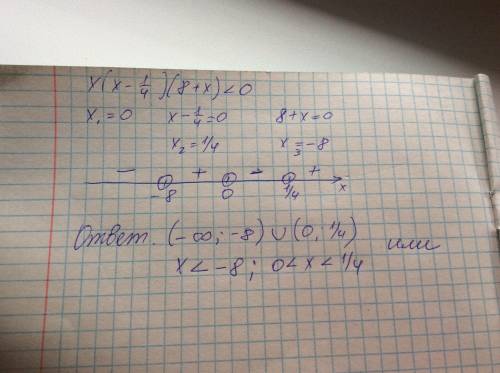 x(x - 1/4)(8+x) < 0
x₁ = 0 x - 1/4 = 0 8+x = 0
x₂ = 1/4 x₃ = -8
- + - +
-8 0 1/4 x
Ответ. (-∞; -8) ∪ (0, 1/4) или
x < -8; 0 < x < 1/4